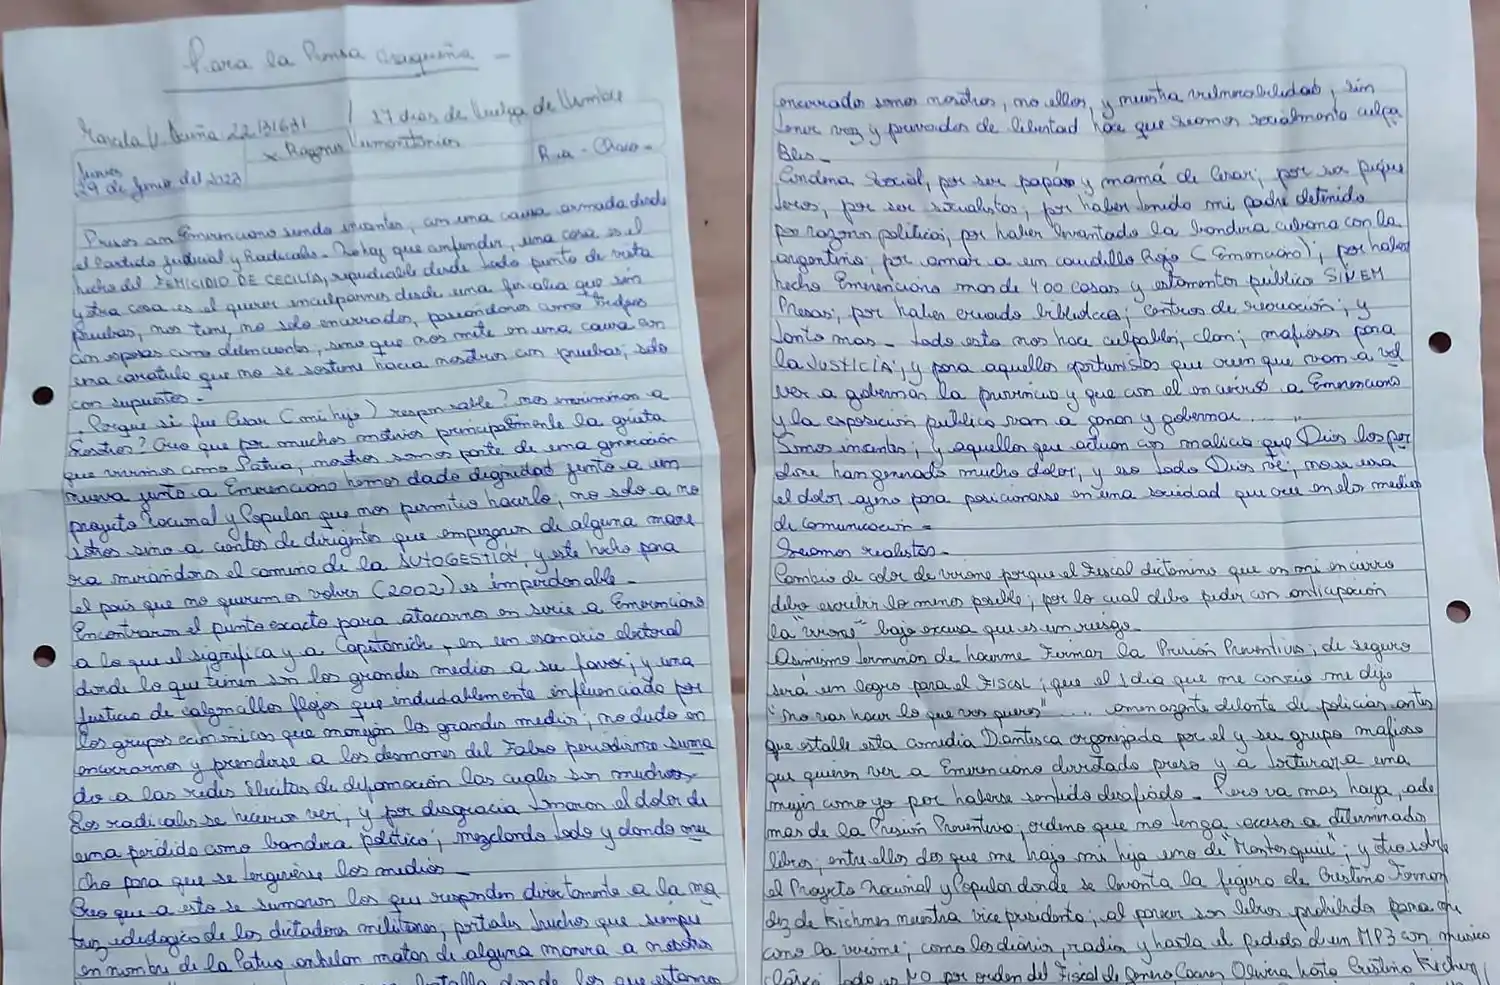 Para la Prensa Chaqueña -
Marcela V. Acuña 22131631 / 17 dias de Huelga de Hambre
x Razones Humanitarias
Rcia - Chaco -
Jueves
29 de Junio del 2023
Presos con Emerenciano siendo inocentes, con una causa armada desde
el Partido Judicial y Radicales. No hay que confundir, una cosa es el
hecho del FEMICIDIO DE CECILIA, repudiable desde todo punto de vista
y otra cosa es el querer inculparnos desde una fiscalia que sin
pruebas, nos tiene, no solo encerrados, paseandonos como
con esposas como delincuentes, sino que nos mete en una causa con
una caratula que no se sostiene hacia nosotros con pruebas, solo
con supuestos.-
Porque si fue Cesar (mi hijo) responsable? nos incriminan a
Nosotros? Creo que por muchos motivos principalmente la grieta
que vivimos como Patria, nosotros somos parte de una generación
nueva junto a Emerenciano hemos dado dignidad junto a un
proyecto Nacional y Popular que nos permitio hacerlo, no solo a no
sotros sino a cientos de dirigentes que empezaron de alguna mane
ra mirandonos el camino de la AUTOGESTIÓN, y este hecho para
el pais que no queremos volver (2002) es imperdonable.-
Encontraron el punto exacto para atacarnos en serie a Emerenciano
a lo que el significa y a Capitanich, en un escenario electoral
donde lo que tienen son los grandes medios a su favor; y una
Justicia de calzoncillos flojos que indudablemente influenciado por
los grupos económicos que manejan los grandes medios; no dudo en
encerrarnos y prenderse a los desmanes del Falso periodismo suma
do a las redes ilicitas de difamación las cuales son muchas.
Los radicales se hicieron ver, y por desgracia tomaron el dolor de
una perdida como bandera politica; mezclando todo y dando mu
cho para que se tergiverse los medios -
Creo que a esto se sumaron los que responden directamente a la ma
triz ideologica de los dictadores militares; portales truchos que siempre
en nombre de la Patria anhelan matar de alguna manera a nosotros
donde los que estamos
encerrados somos nosotros, no ellos, y nuestra vulnerabilidad, sin
tener voz y privados de libertad hace que seamos socialmente culpa
bles.-
Condena Social, por ser papá y mamá de Cesar, por ser pique
teros, por ser socialistas, por haber tenido mi padre detenido
por razones politicas, por haber levantado la bandera cubana con la
argentina, por amar a un caudillo Rojo (Emerenciano); por haber
hecho Emerenciano mas de 400 casas y estamentos público SIN EM
Presas; por haber creado bibliotecas, centros de recreación; y
tanto mas - todo esto nos hace culpables, clan; mafiosos para
la JUSTICIA; y para aquellos oportunistas que creen que van a vol
ver a gobernar la provincia y que con el encierro a Emerenciano
y la exposición publica van a ganar y gobernar.....
Somos inocentes, y aquellos que actuan con malicia que Dios los per
done han generado mucho dolor, y eso todo Dios ve; no se usa
el dolor ajeno para posicionarse en una sociedad que cree en los medios
de comunicación =
Seamos realistas.-
Cambio de color de birome porque el Fiscal dictamino que en mi encierro
debo escribir lo menos posible, por lo cual debo pedir con anticipación
la "birome" bajo excusa que es un riesgo.
Asimismo terminan de hacerme Firmar la Prisión Preventiva; de seguro
será un logro para el FISCAL; que el 1 dia que me conocio me dijo
"no vas hacer lo que vos queres".... amenazante delante de policias antes
que estalle esta comedia Dantesca organizada por el y su grupo mafioso
que quieren ver a Emerenciano derrotado preso y a torturar a una
mujer como yo por haberse sentido desafiado - Pero va mas haya, ade
mas de la Presión Preventiva, ordeno que no tenga acceso a determinados
libros, entre ellos dos que me trajo mi hija uno de "Montesquiu"; y otro sobre
el Proyecto Nacional y Popular donde se levanta la figura de Cristina Fernan
dez de Kichner nuestra vice presidenta; al parecer son libros prohibidos para mi
como la birome; como los diarios, radios y hasta el pedido de un MP3 con musica
clásica todo es NO por orden del Fiscal de Genero Caceres Olivera hasta Cristina Kichner